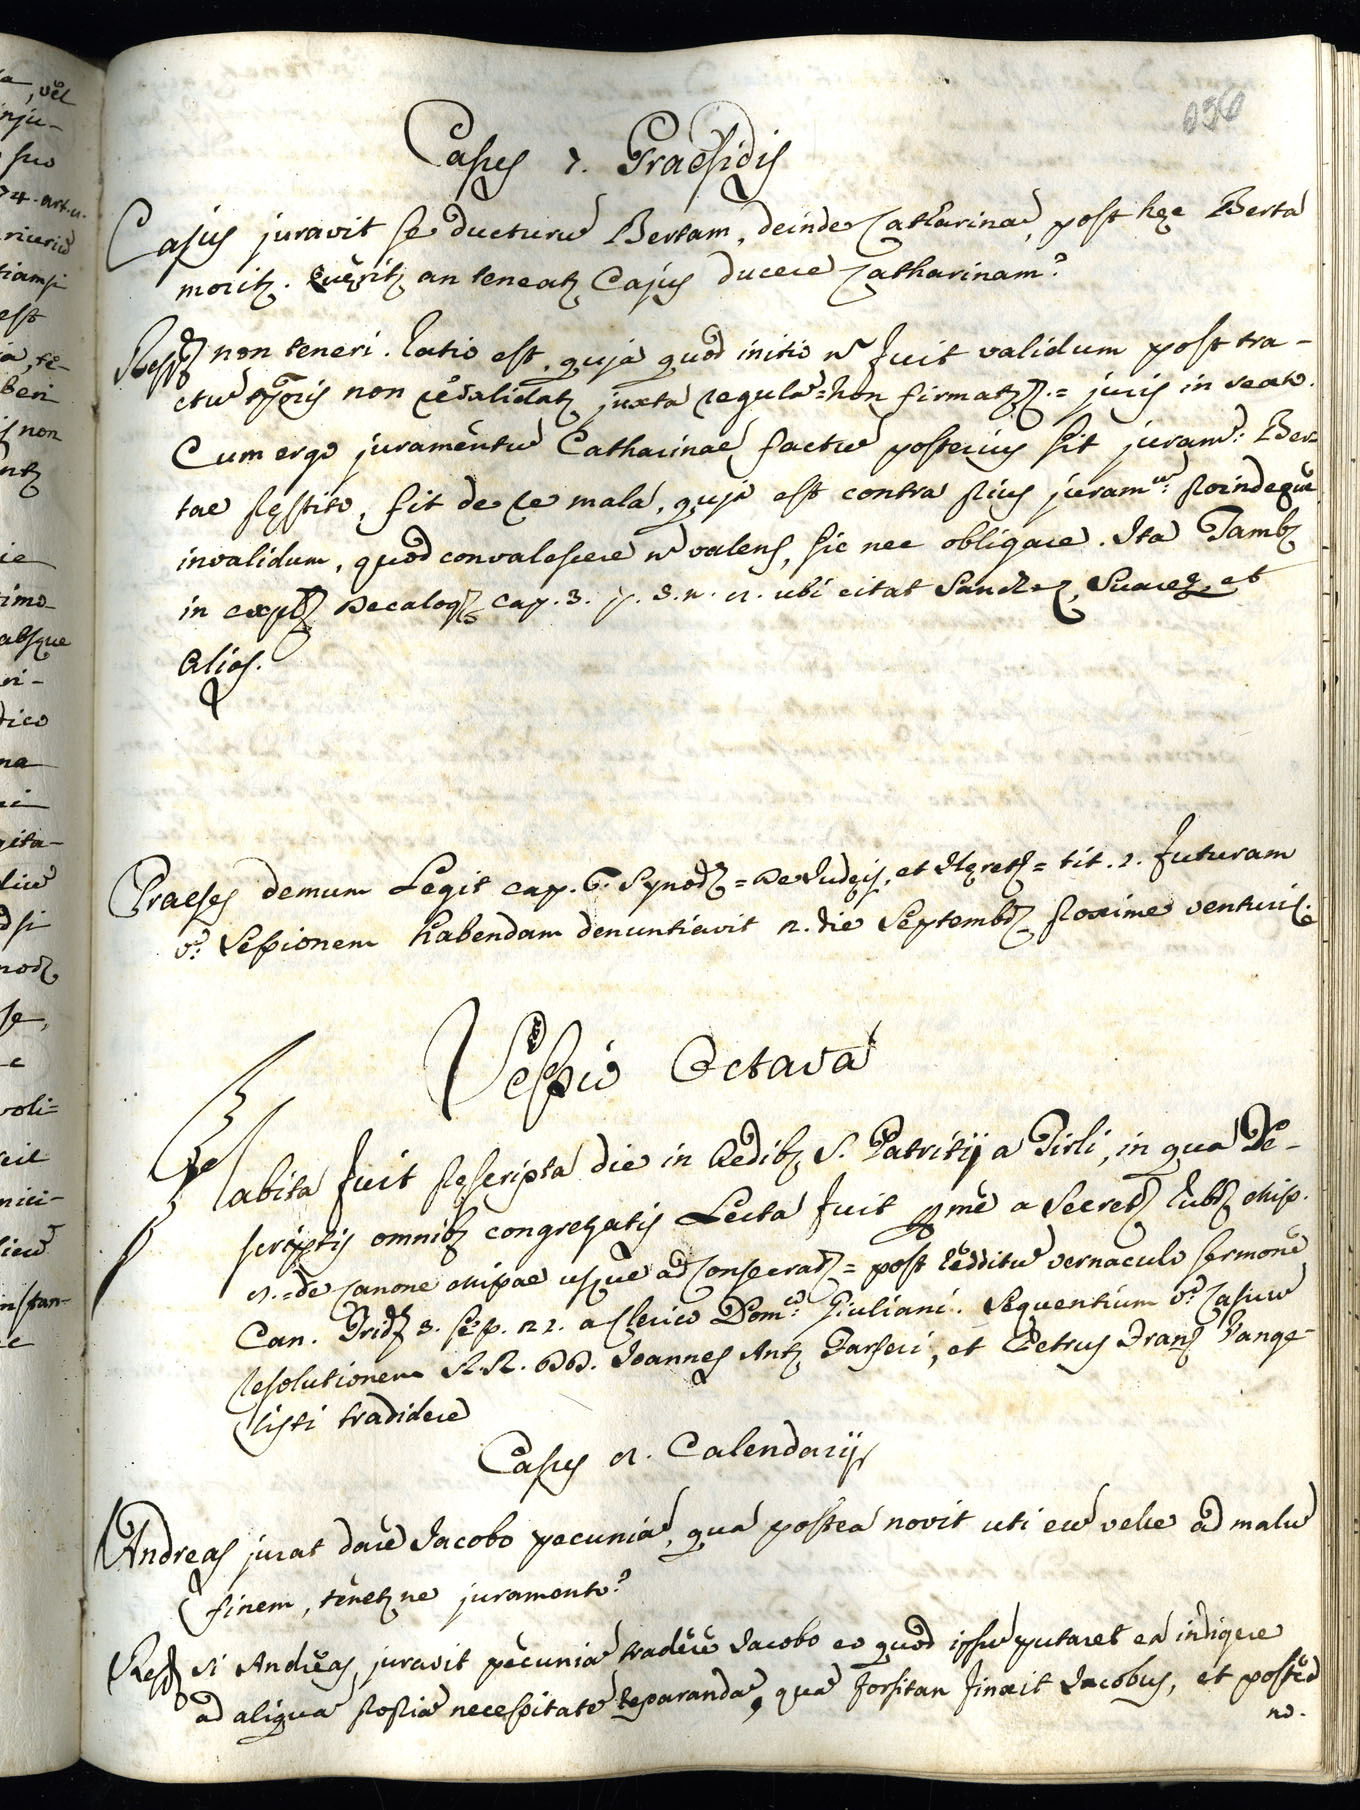 056
Casus 7. Praesidis
Cajus juravit se ducturū Bertam, deinde Catharinā, post hęc Berta
moritꝫ. Quęritꝫ an teneatꝫ Cajus ducere Catharinam?
Respꝫ non teneri. Ratio est, quja quod initio n̄ fuit validum post tra-
ctū tꝑoris non cōvalidatꝫ juxta regulā = Non firmatꝫ = juris in sexto.
Cum ergo juramentū Catharinae factū posterius sit juram: Ber-
tae pręstito, sit de re mala, quja est contra prius juram: proindeque
invalidum, quod convalescere n̄ valens, sic nec obligare. Ita Tambꝫ
in explꝫ Decalogꝫ cap. 3. §. 3. n. 11. ubi citat Sanchez, Suarez et
Alios.
Praeses demum Legit cap. 6. Synodꝫ = De Judęis, et Hęretꝫ = tit. 2. futuram
v: Sessionem habendam denuntiavit 12. die Septembꝫ proxime venturis.
Sessio Octava
Habita fuit pręscripta die in Aedibꝫ S. Patritij a Tirli, in qua De-
scriptis omnibꝫ congregatis Lecta fuit p̄me a Secretꝫ Rubꝫ Miss.
11. = de Canone Missae usque ad Consecratꝫ = post redditū vernaculo sermone
Can. Tridꝫ 3. sess. 22. a Clerico Dom: Giuliani. Sequentium v: Casuū
resolutionem RR. DD. Joannes Antꝫ Parseri, et Petrus Franꝫ Vange-
listi tradidere
Casus 11. Calendarij
Andreas jurat dare Jacobo pecuniā, quā postea novit uti eū velle ad malū
finem, tenetꝫne juramento?
Respꝫ si Andreas juravit pecuniā tradere Jacobo eo quod ipsū putaret eā indigere
ad aliquā propriā necessitatē reparandā, quā forsitan finxit Jacobus, et postea
no-